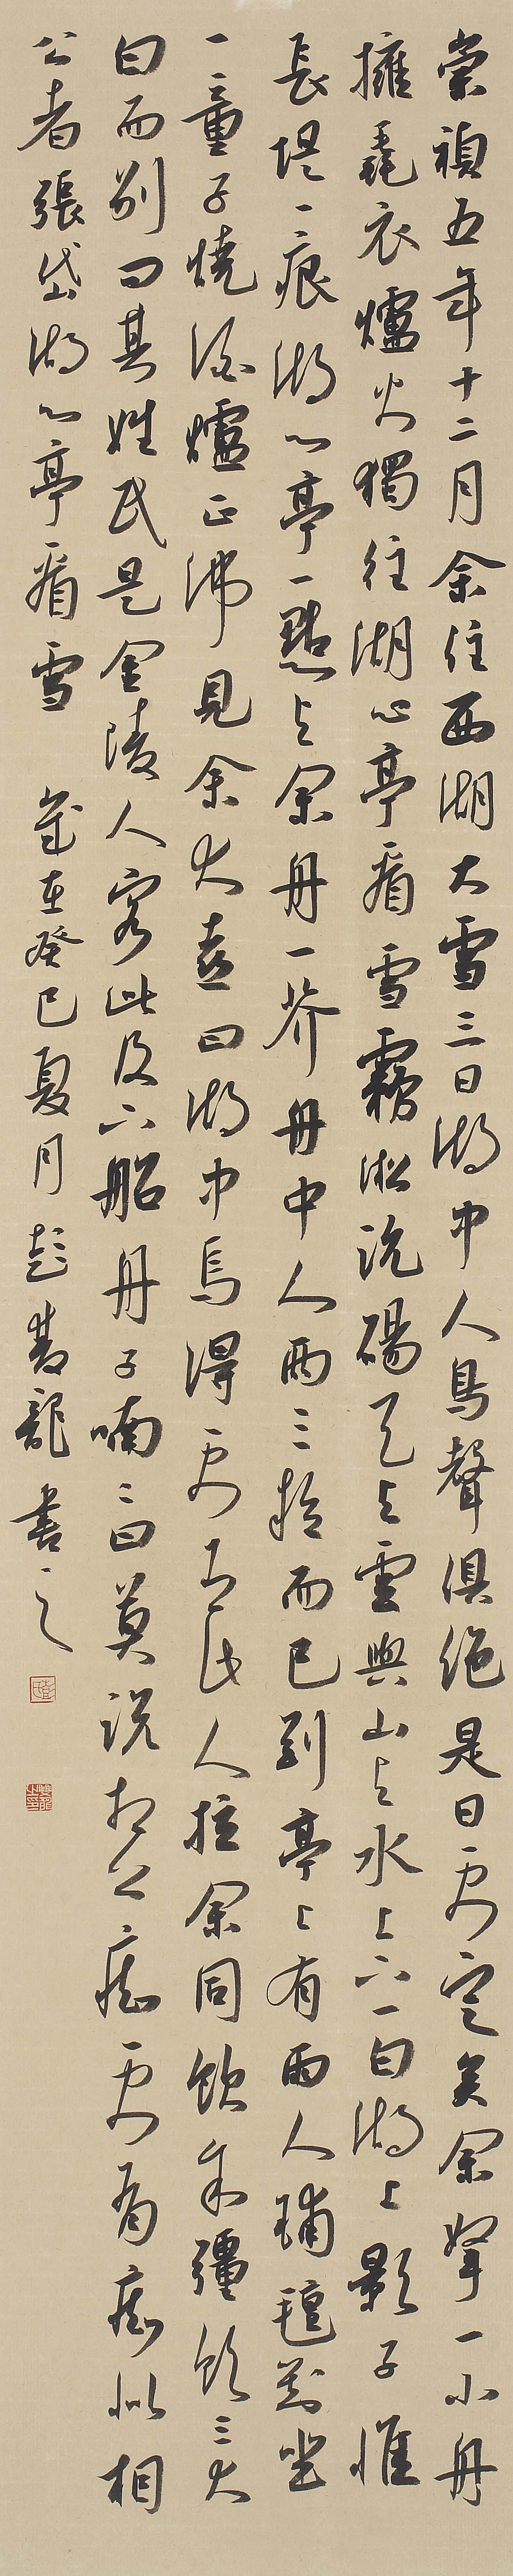 崇禎五年十二月余住西湖大雪三日湖中人鳥聲俱絕是日更定矣余拏一小舟
擁毳衣爐火獨往湖心亭看雪霧淞沆碭天與雲與山與水上下一白湖上影子惟
長堤一痕湖心亭一點與余舟一芥舟中人兩三粒而已到亭上有兩人鋪氈對坐
一童子燒酒爐正沸見余大喜曰湖中焉得更有此人拉余同飲余強飲三大
白而別問其姓氏是金陵人客此及下船舟子喃喃曰莫說相公癡更有癡似相
公者張岱湖心亭看雪 歲在癸巳夏月彭雙龍書之
彭氏
雙龍之印